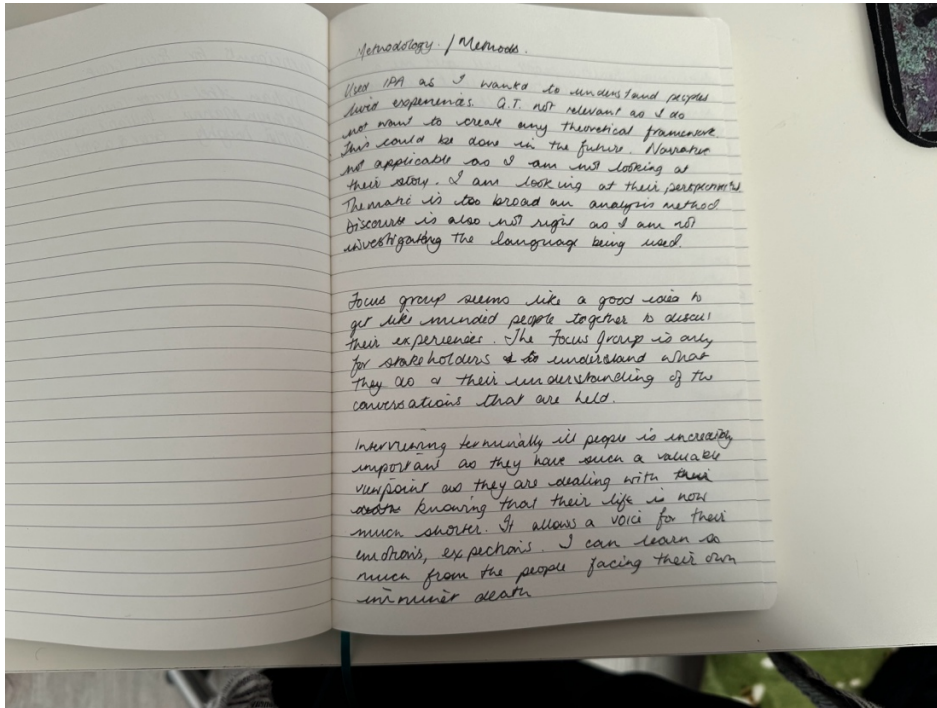 Methodology / Methods.
Used IPA as I wanted to understand peoples
lived experiences. G.T. not relevant as I do
not want to create any theoretical framework.
This could be done in the future. Narrative
not applicable as I am not looking at
their story. I am looking at their perspective
Thematic is too broad an analysis method
Discourse is also not right as I am not
investigating the language being used.
Focus group seems like a good idea to
get like minded people together to discuss
their experiences. The Focus Group is only
for stakeholders to understand what
they do & their understanding of the
conversations that are held.
Interviewing terminally ill people is incredibly
important as they have such a valuable
viewpoint as they are dealing with
knowing that their life is now
much shorter. It allows a voice for their
emotions, expections. I can learn so
much from the people facing their own
death